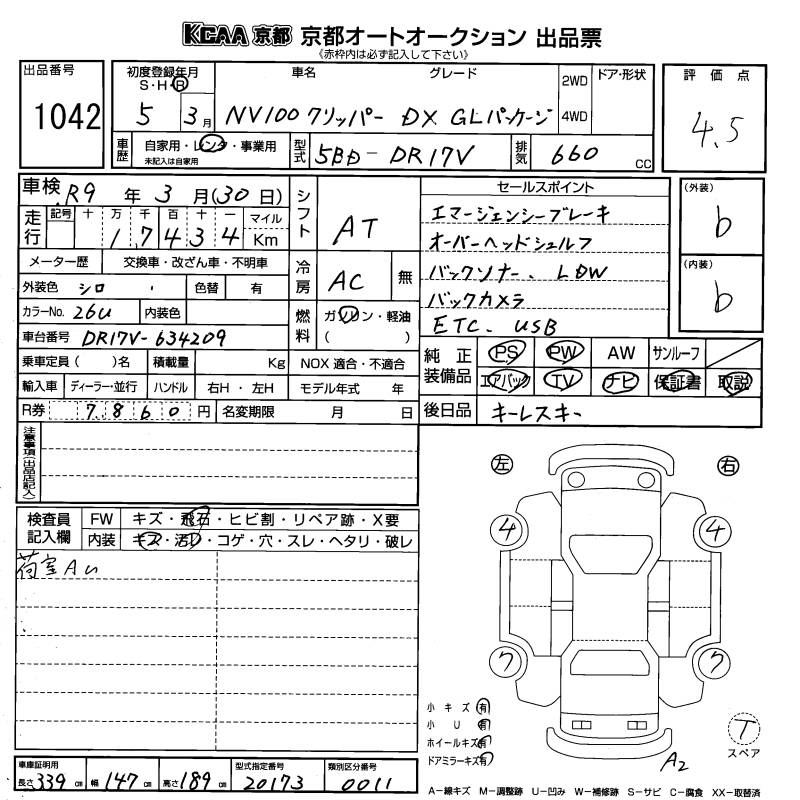 KCAA 京都 京都オートオークション 出品票
《赤枠内は必ず記入して下さい》
出品番号
1042
初度登録年月
S・H・R
5 3月
車名 グレード
NV100 クリッパー DX GLパッケージ
2WD
4WD
ドア・形状
評価点
4.5
車歴
自家用・レンタ・事業用
未記入は自家用
型式
5BD-DR17V
排気
660 CC
車検 R9年 3月(30日)
走行
記号 十 万 千 百 十 一 マイル
1 7 4 3 4 Km
メーター歴 交換車・改ざん車・不明車
外装色 シロ 色替 有
カラーNo. 26U 内装色
車台番号 DR17V-634209
シフト
AT
冷房
AC
無
燃料
ガソリン・軽油
( )
セールスポイント
エマージェンシーブレーキ
オーバーヘッドシェルフ
バックソナー、LDW
バックカメラ
ETC、USB
(外装)
b
(内装)
b
乗車定員( )名 積載量 Kg NOX 適合・不適合
輸入車 ディーラー・並行 ハンドル 右H・左H モデル年式 年
R券 7860円 名変期限 月 日
純正装備品
PS PW AW サンルーフ
エアバック TV ナビ 保証書 取説
後日品 キーレスキー
注意事項(出品店記入)
検査員記入欄
FW キズ・飛石・ヒビ割・リペア跡・X要
内装 キズ・汚れ・コゲ・穴・スレ・ヘタリ・破レ
荷室AU
左 右
4 4
7 7
小キズ 有
小U 有
ホイールキズ 有
ドアミラーキズ 有
T
スペア
A2
車庫証明用
長さ339cm 幅147cm 高さ189cm
型式指定番号
20173
類別区分番号
0011
A−線キズ M−調整跡 U−凹み W−補修跡 S−サビ C−腐食 XX−取替済